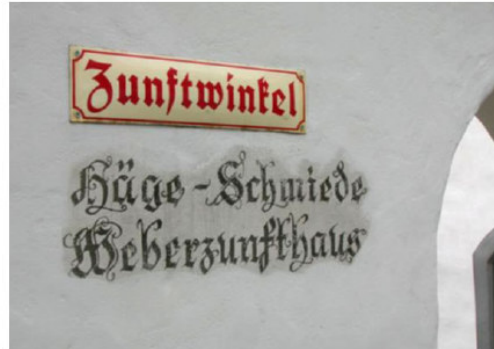 Zunftwinkel
Häge-Schmiede
Weberzunfthaus